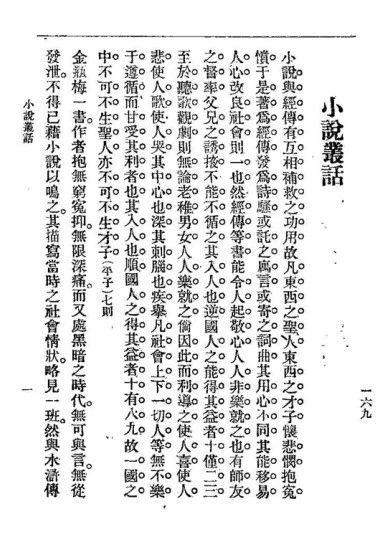 一六九
小說叢話
小說與經傳有互相補救之功用故凡東西之聖人東西之才子懷悲憫抱寃
憤于是著爲經傳發爲詩騷或託之寓言或寄之詞曲其用心不同其能移易
人心改良社會則一也然經傳等書能令人起敬心人人非樂就之也有師友
之督率父兄之誘掖不能不循之其入人也逆國人之能得其益者十僅二三
至於聽歌觀劇則無論老稚男女人人樂就之倘因此而利導之使人喜使人
悲使人歌使人哭其中心也深其刺腦也疾舉凡社會上下一切人等無不樂
于遵循而甘受其利者也其入人也順國人之得其益者十有八九故一國之
中不可不生聖人亦不可不生才子(平子)七則
金瓶梅一書。作者抱無窮寃抑。無限深痛。而又處黑暗之時代。無可與言。無從
發泄。不得已藉小說以鳴之。其描寫當時之社會情狀。略見一班。然與水滸傳
小說叢話
一